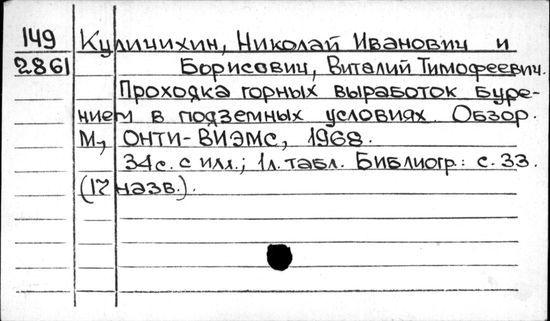 149 Куличихин, Николай Иванович и
2861 Борисович, Виталий Тимофеевич.
Проходка горных выработок буре-
нием в подземных условиях. Обзор.
М., ОНТИ-ВИЭМС, 1968.
34с. с илл.; 1л. табл. Библиогр.: с. 33.
(17 назв.).